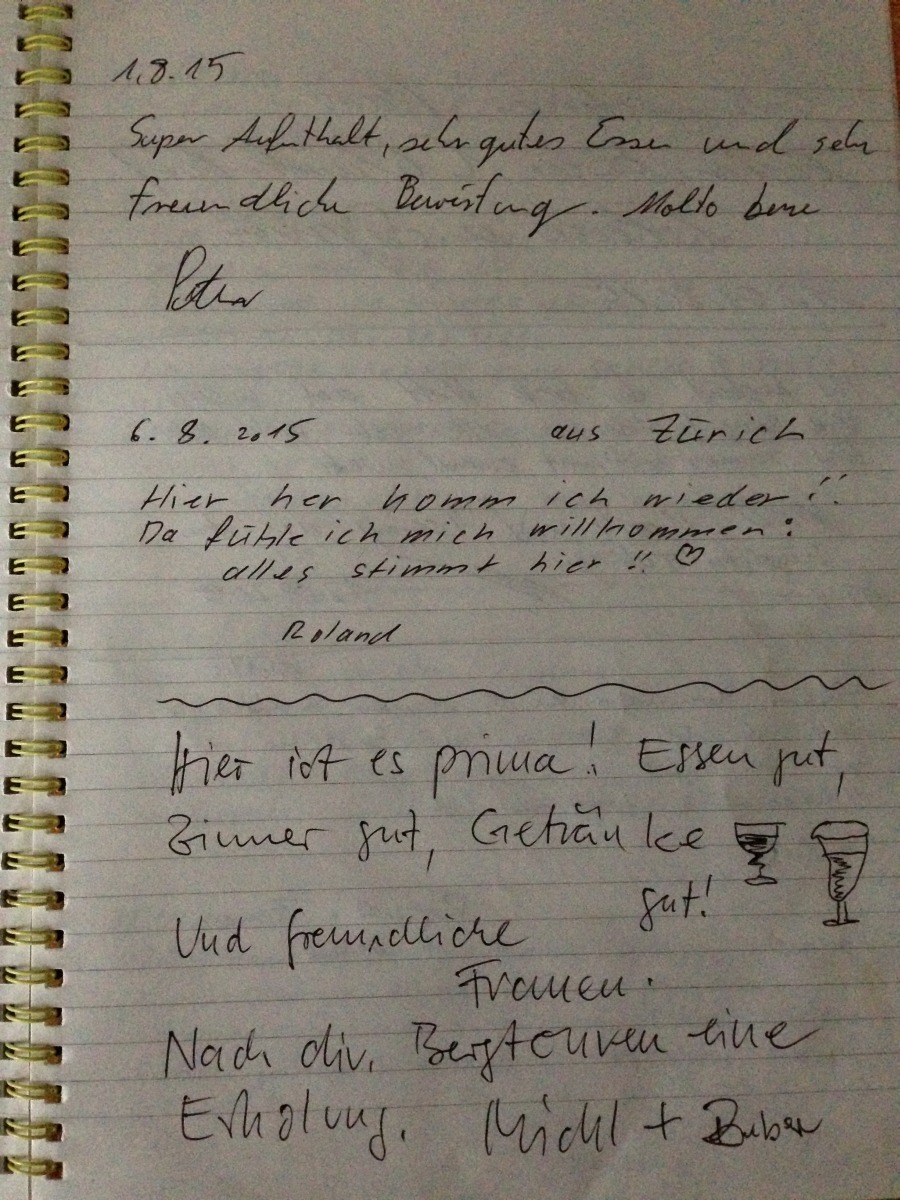 1.8.15
Super Aufenthalt, sehr gutes Essen und sehr
freundliche Bewirtung. Molto bene
Peter
6. 8. 2015 aus Zürich
Hier her komm ich wieder!!
Da fühle ich mich willkommen:
alles stimmt hier!! ♡
Roland
Hier ist es prima! Essen gut,
Zimmer gut, Getränke
gut!
Und freundliche
Frauen.
Nach div. Bergtouren eine
Erholung. Michl +